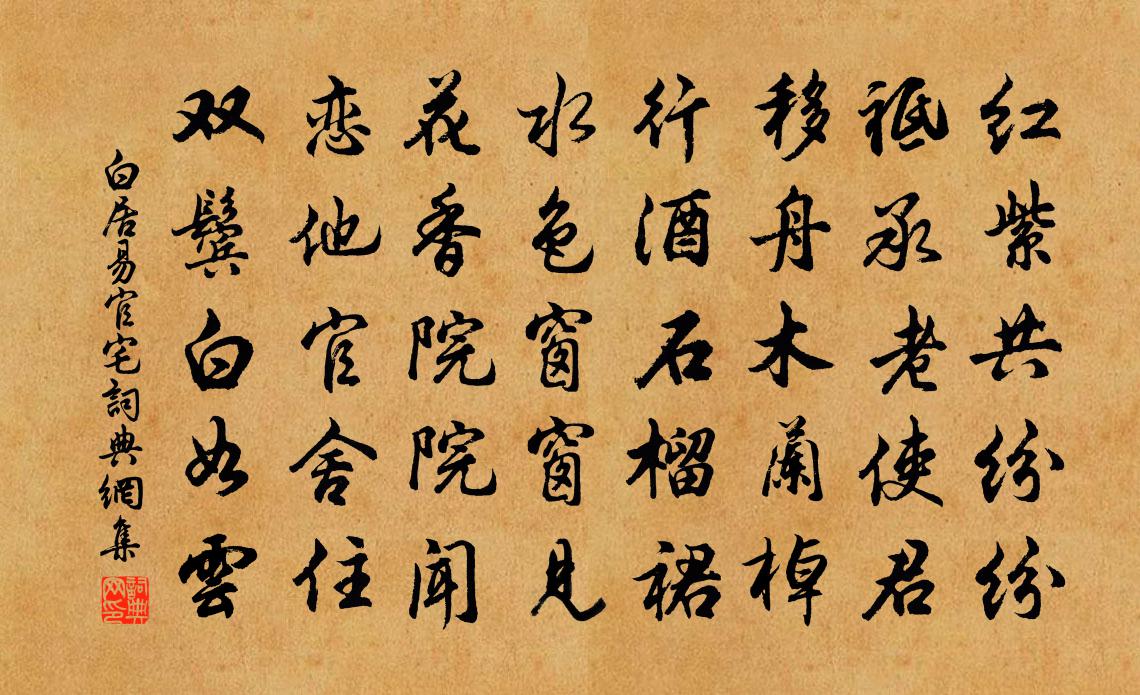 红紫共纷纷
祗承老使君
移舟木蘭棹
行酒石榴裙
水色窗窗见
花香院院闻
恋他官舍住
双鬓白如雲
白居易官宅詞典網集
詞典网印